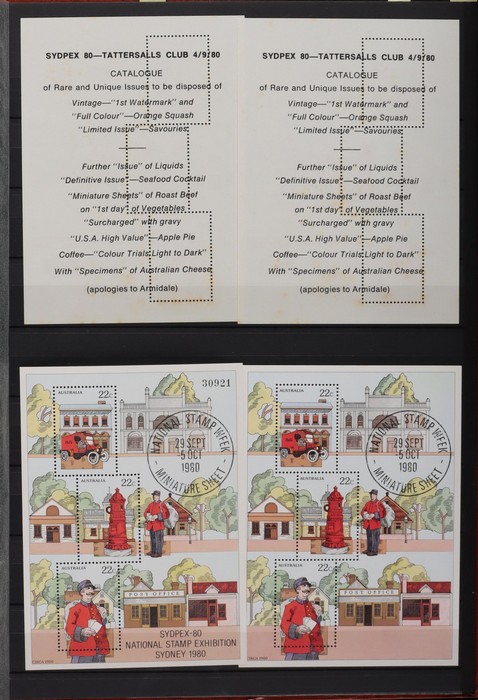 SYDPEX 80—TATTERSALLS CLUB 4/9/80
CATALOGUE
of Rare and Unique Issues to be disposed of
Vintage—"1st Watermark" and
"Full Colour"—Orange Squash
"Limited Issue"—Savouries
Further "Issue" of Liquids
"Definitive Issue"—Seafood Cocktail
"Miniature Sheets" of Roast Beef
on "1st day" of Vegetables
"Surcharged" with gravy
"U.S.A. High Value"—Apple Pie
Coffee—"Colour Trials Light to Dark"
With "Specimens" of Australian Cheese
(apologies to Armidale)
SYDPEX 80—TATTERSALLS CLUB 4/9/80
CATALOGUE
of Rare and Unique Issues to be disposed of
Vintage—"1st Watermark" and
"Full Colour"—Orange Squash
"Limited Issue"—Savouries
Further "Issue" of Liquids
"Definitive Issue"—Seafood Cocktail
"Miniature Sheets" of Roast Beef
on "1st day" of Vegetables
"Surcharged" with gravy
"U.S.A. High Value"—Apple Pie
Coffee—"Colour Trials Light to Dark"
With "Specimens" of Australian Cheese
(apologies to Armidale)
30921
AUSTRALIA 22c
NATIONAL STAMP WEEK
29 SEPT
5 OCT
1980
- MINIATURE SHEET -
AUSTRALIA 22c
AUSTRALIA 22c
POST OFFICE
SYDPEX-80
NATIONAL STAMP EXHIBITION
SYDNEY 1980
AUSTRALIA 22c
NATIONAL STAMP WEEK
29 SEPT
5 OCT
1980
- MINIATURE SHEET -
AUSTRALIA 22c
AUSTRALIA 22c
POST OFFICE